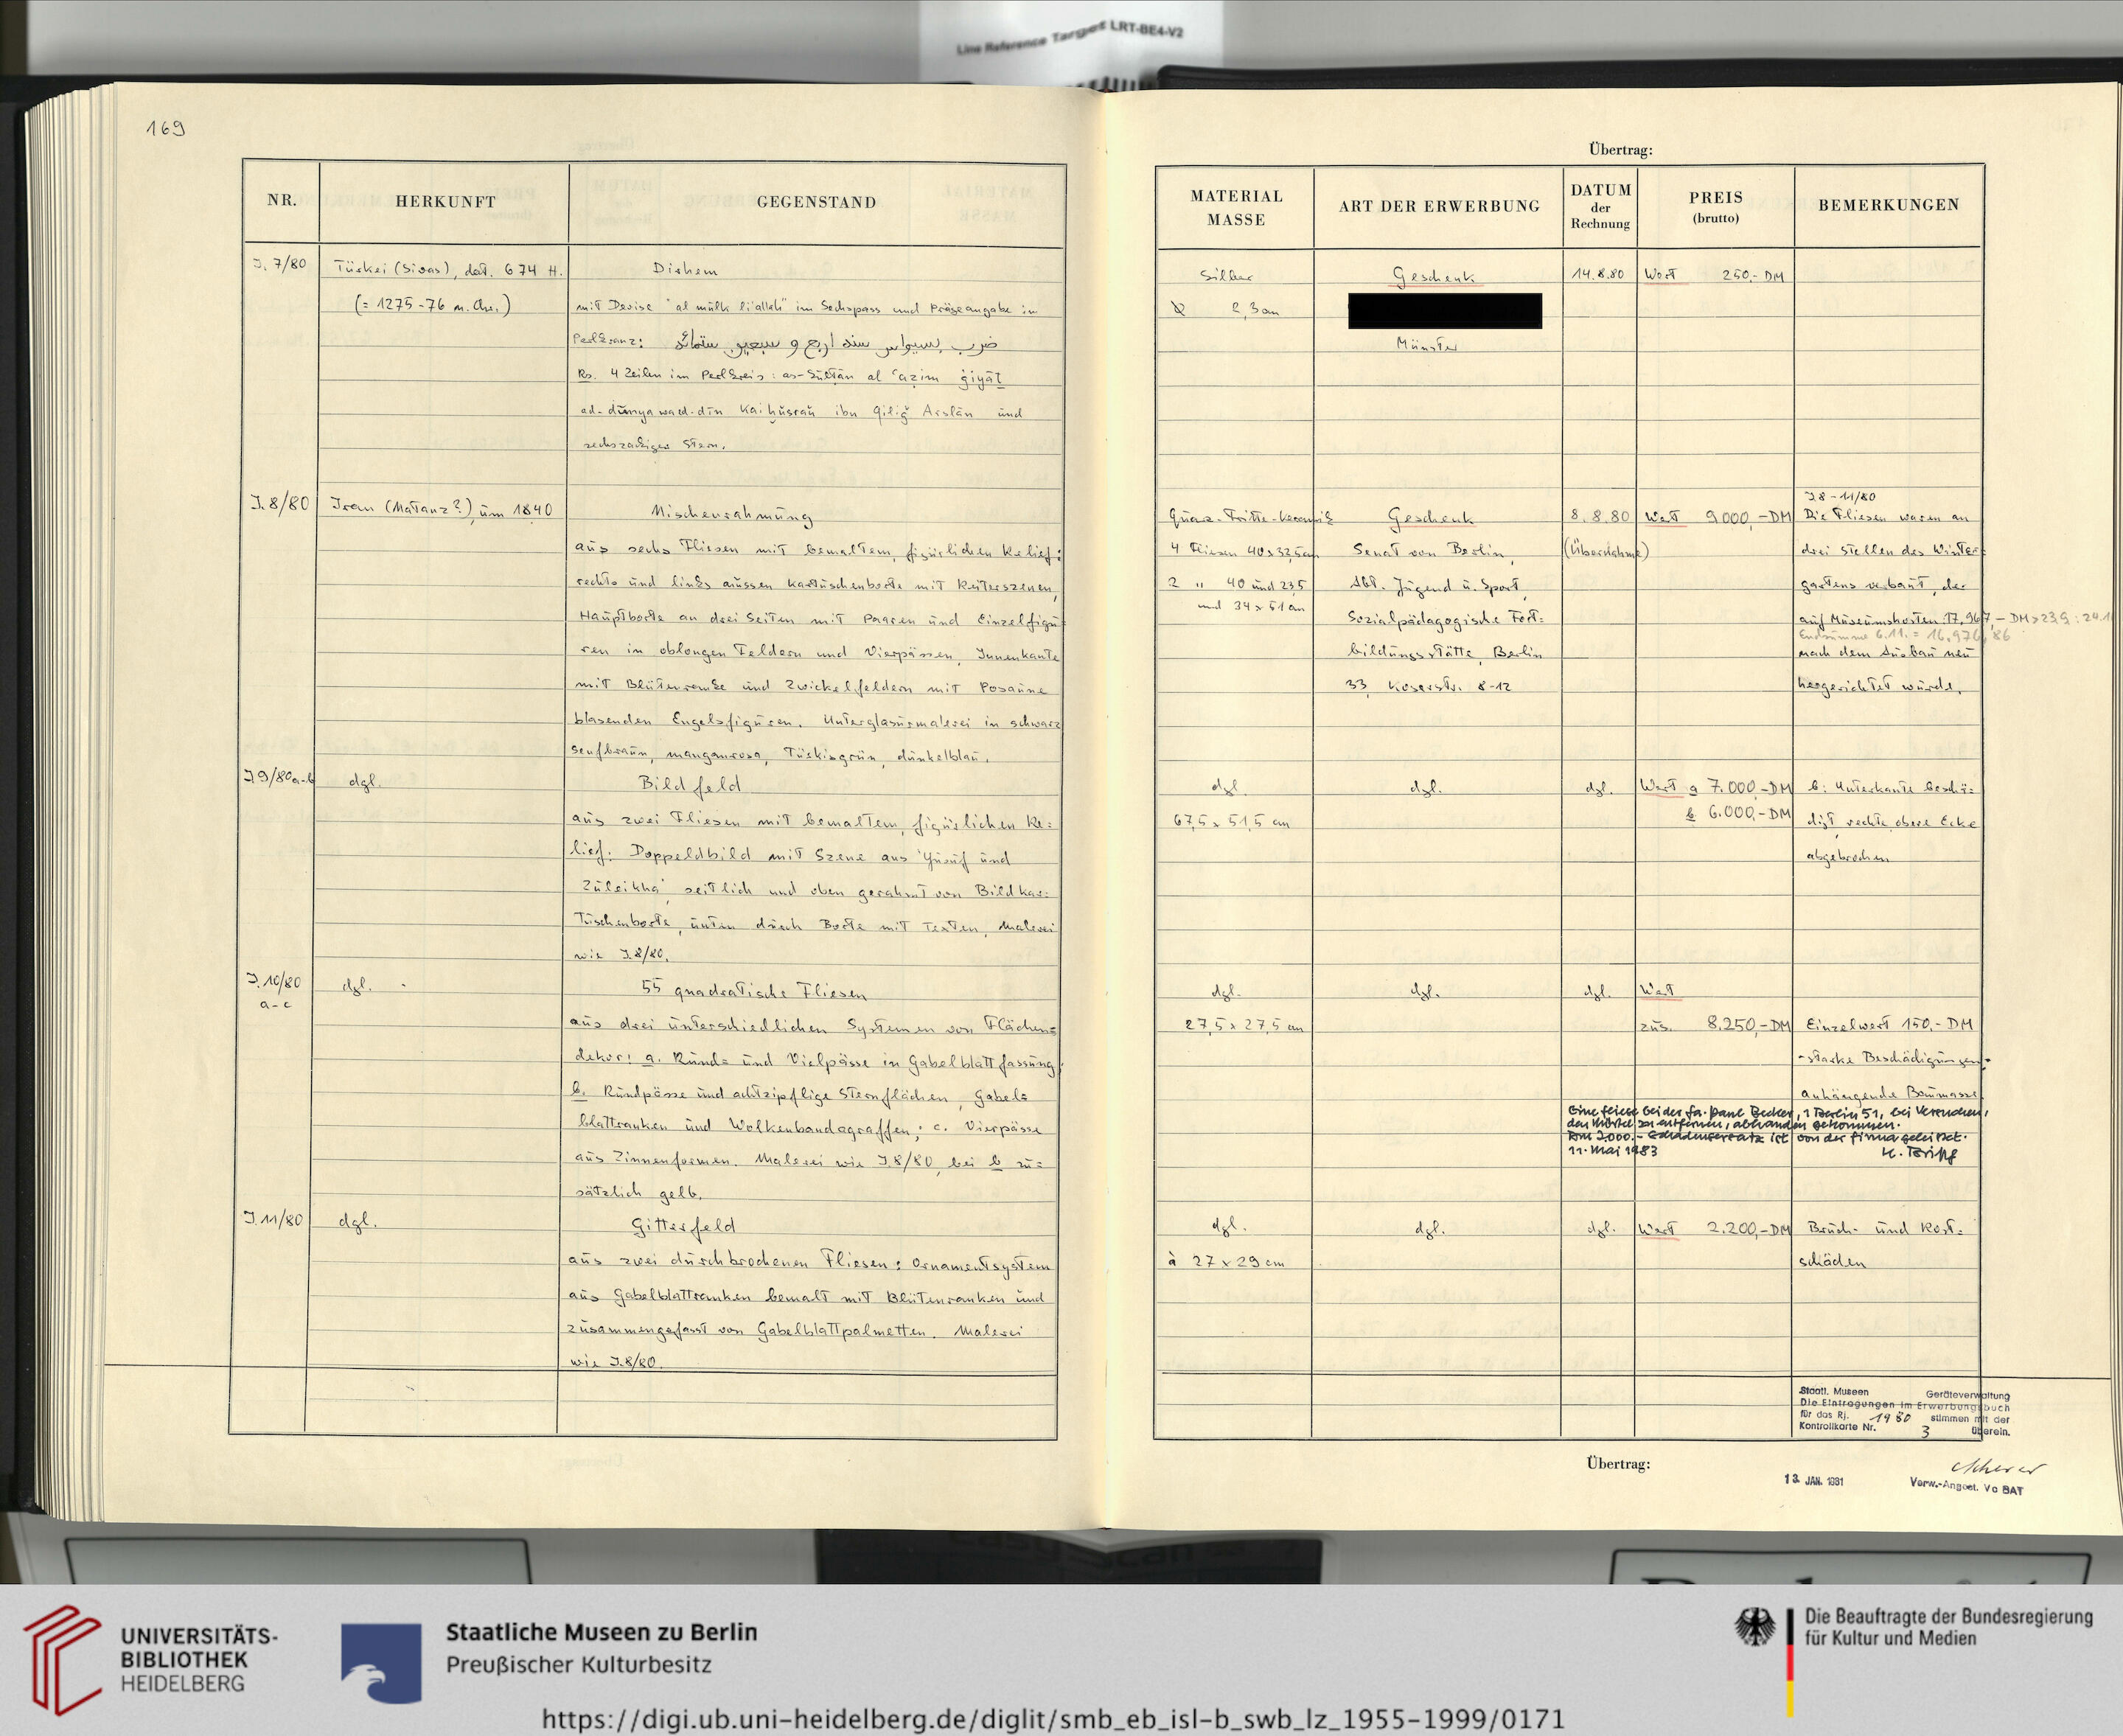 Line Reference Target LRT-BE4-V2
169
NR.
HERKUNFT
GEGENSTAND
J. 7/80
Türkei (Sivas), dat. 674 H.
(= 1275-76 n. Chr.)
Dirhem
mit Devise "al mülk li'allah" im Sechspass und Prägeangabe im
Perlkranz: ضرب بسيواس سنة اربع و سبعين ستمائة
Rs. 4 Zeilen im Perlkreis: as-Sulṭān al ʿaẓim ġiyāṯ
ad-dunya wad-dīn Kaiḫusrau ibn Qiliǧ Arslān und
sechszackiger Stern.
J.8/80
Iran (Mātanz?), um 1840
Nischenrahmung
aus sechs Fliesen mit bemaltem, figürlichen Relief:
rechts und links aussen Kartuschenborte mit Reiterszenen,
Hauptborte an drei Seiten mit Paaren und Einzelfigu=
ren in oblongen Feldern und Vierpässen, Innenkante
mit Blütenranke und Zwickelfeldern mit Posaune
blasenden Engelsfiguren. Unterglasurmalerei in schwarz
senfbraun, manganrosa, Türkisgrün, dunkelblau.
J.9/80a-b
dgl.
Bildfeld
aus zwei Fliesen mit bemaltem, figürlichen Re=
lief: Doppelbild mit Szene aus 'Yusuf und
Zuleikha' seitlich und oben gerahmt von Bildkar=
tuschenborte, unten durch Borte mit Texten, Malerei
wie J.8/80.
J.10/80
a-c
dgl.
55 quadratische Fliesen
aus drei unterschiedlichen Systemen von Flächen=
dekor: a. Rund= und Vielpässe in Gabelblattfassung;
b. Rundpässe und achtzipflige Sternflächen, Gabel=
blattranken und Wolkenbandagraffen; c. Vierpässe
aus Zinnenformen. Malerei wie J.8/80, bei b zu=
sätzlich gelb.
J.11/80
dgl.
Gitterfeld
aus zwei durchbrochenen Fliesen: Ornamentsystem
aus Gabelblattranken bemalt mit Blütenranken und
zusammengefasst von Gabelblattpalmetten. Malerei
wie J.8/80.
Übertrag:
MATERIAL
MASSE
ART DER ERWERBUNG
DATUM
der
Rechnung
PREIS
(brutto)
BEMERKUNGEN
Silber
Ø 2,3 cm
Geschenk
Münster
14.8.80
Wert 250,- DM
Quarz-Fritte-Keramik
4 Fliesen 40 x 32,5 cm
2 " 40 und 23,5
und 34 x 51 cm
Geschenk
Senat von Berlin,
Abt. Jugend u. Sport,
Sozialpädagogische Fort=
bildungsstätte, Berlin
33, Koserstr. 8-12
8.8.80
(Übernahme)
Wert 9000,-DM
J.8-11/80
Die Fliesen waren an
drei Stellen des Winter=
gartens verbaut, der
auf Museumskosten: 17.967,- DM
Endsumme 6.11. = 16.976,86
nach dem Ausbau neu
hergerichtet wurde.
dgl.
67,5 x 51,5 cm
dgl.
dgl.
Wert a 7.000,-DM
b 6.000,-DM
b: Unterkante beschä=
digt, rechte obere Ecke
abgebrochen
dgl.
27,5 x 27,5 cm
dgl.
dgl.
Wert
zus. 8.250,-DM
Einzelwert 150,- DM
-starke Beschädigungen-
anhängende Baumasse
Eine Fliese bei der Fa. Paul Becker, 1 Berlin 51, bei Versuchen,
den Mörtel zu entfernen, abhanden gekommen.
DM 2.000.- Schadensersatz ist von der Firma geleistet.
11. Mai 1983
dgl.
à 27 x 29 cm
dgl.
dgl.
Wert 2.200,-DM
Bruch- und Rost=
schäden
Staatl. Museen Geräteverwaltung
Die Eintragungen im Erwerbungsbuch
für das Rj. 1980 stimmen mit der
Kontrollkarte Nr. 3 überein.
Übertrag:
13. JAN. 1981
Scherer
Verw.-Angest. Vc BAT
UNIVERSITÄTS-
BIBLIOTHEK
HEIDELBERG
Staatliche Museen zu Berlin
Preußischer Kulturbesitz
Die Beauftragte der Bundesregierung
für Kultur und Medien
https://digi.ub.uni-heidelberg.de/diglit/smb_eb_isl-b_swb_lz_1955-1999/0171